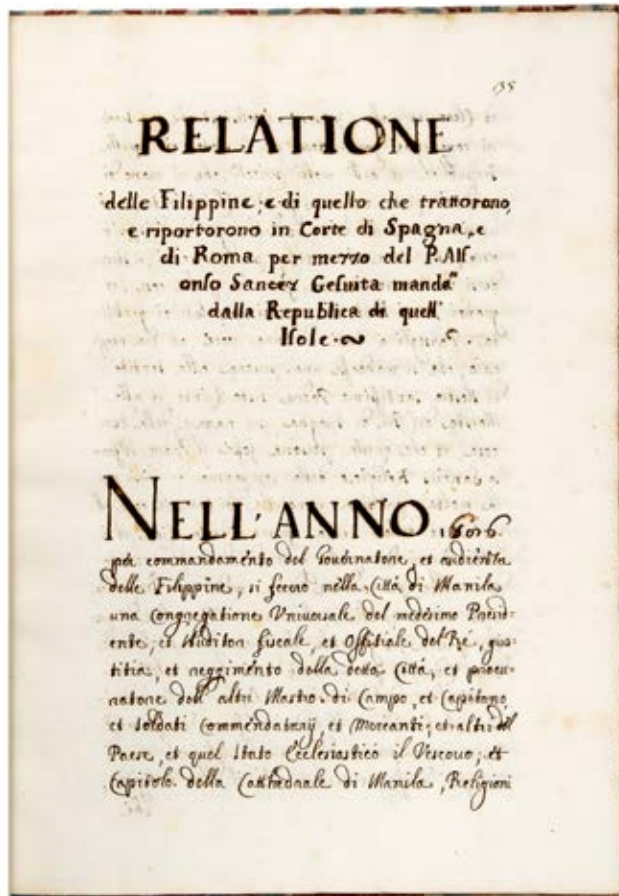 135
RELATIONE
delle Filippine, e di quello che trattorono,
e riportorono in Corte di Spagna, e
di Roma per mezzo del P. Alf-
onso Sancez Gesuita mandato
dalla Republica di quell'
Isole.
NELL'ANNO 1606
per commandamento del Gouernatore, et audientia
delle Filippine, si fecero nella Città di Manila
una Congregatione Vniuersale del medesimo Presid-
ente, et Auditor fiscale, et Offitiale del Ré, gius-
titia, et reggimento della detta Città, et procu-
ratore dell' altri Mastro di Campo, et Capitano
et soldati Commendatarij, et Mercanti, et altri del
Paese, et quel stato Ecclesiastico il Vescouo, et
Capitolo della Cattedrale di Manila, Religioni